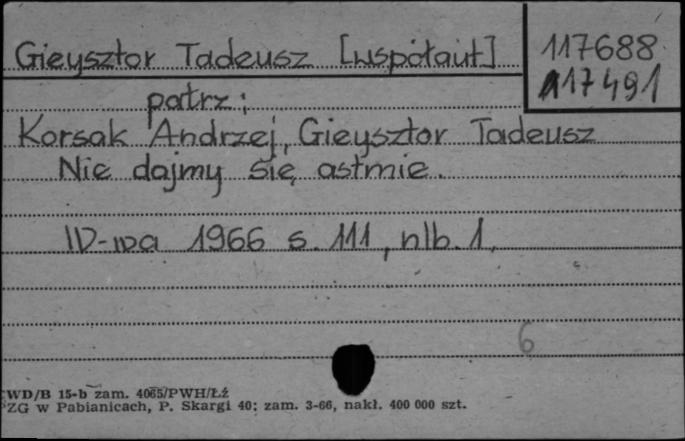 Gieysztor Tadeusz [współaut]
117688
117491
patrz:
Korsak Andrzej, Gieysztor Tadeusz
Nie dajmy się astmie.
W-wa 1966 s. 111, nlb. 1.
6
WD/B 15-b zam. 4065/PWH/Łź
ZG w Pabianicach, P. Skargi 40; zam. 3-66, nakł. 400 000 szt.